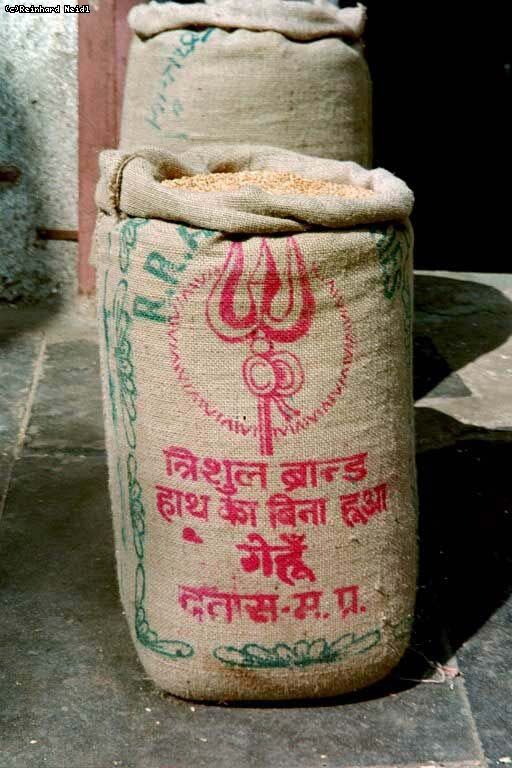 (c)Reinhard Neidl
R.R.
त्रिशुल ब्रान्ड
हाथ का बिना हुआ
गेहूँ
दतास-म. प्र.